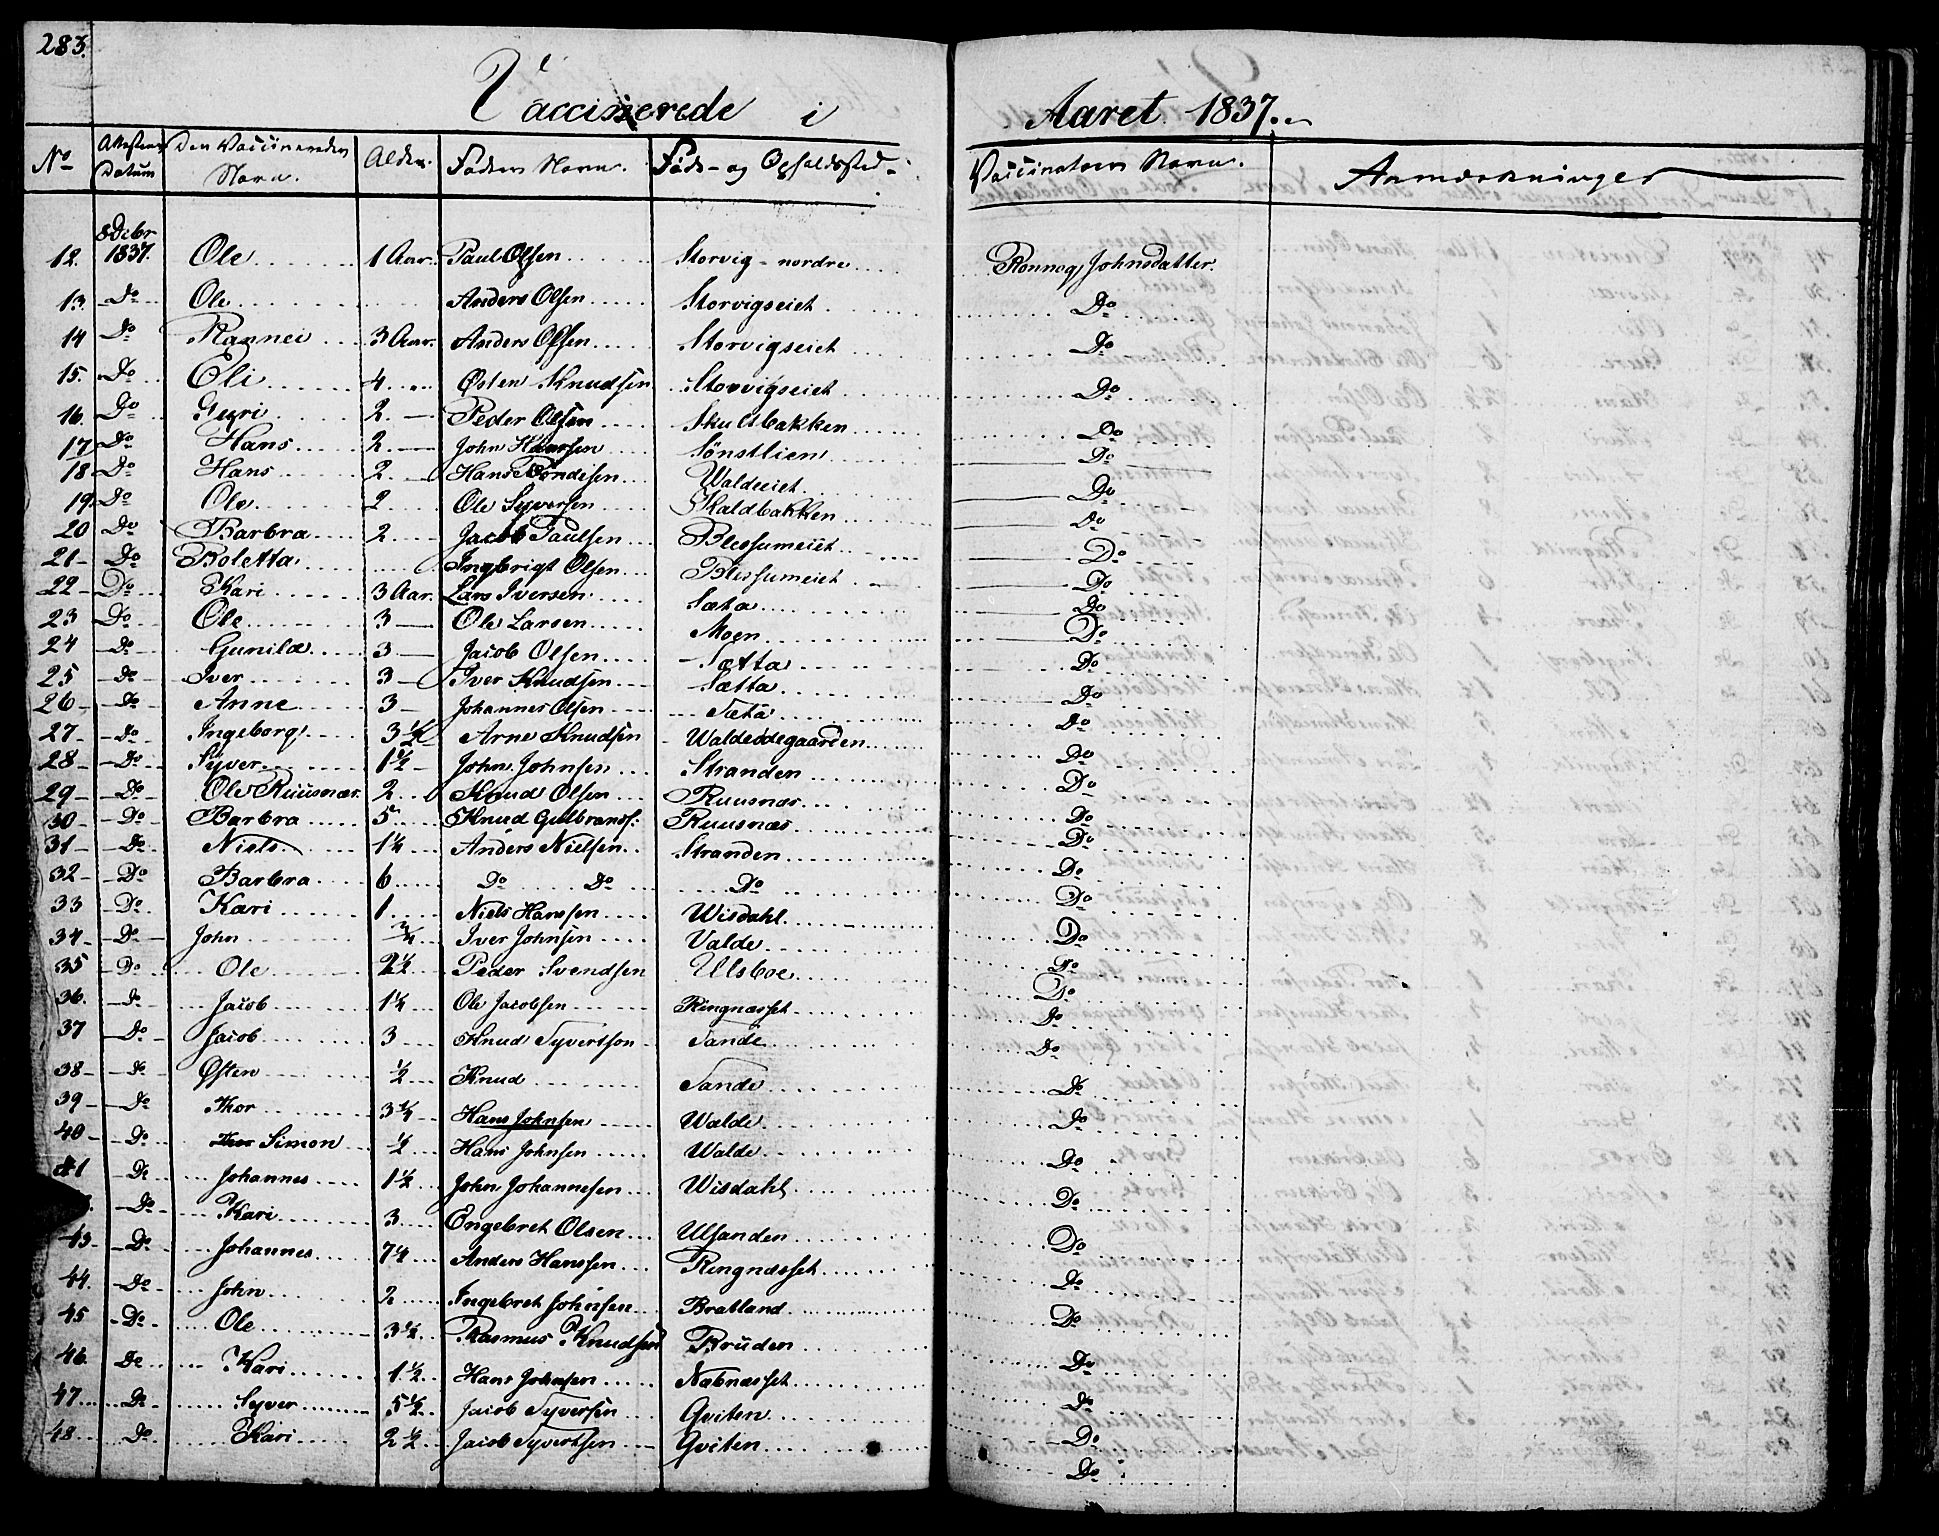 283.
Vaccinerede i Aaret 1837.
No Attestens Datum Den Vaccineredes Navn. Alder. Faders Navn. Føde- og Opholdssted. Vaccinators Navn. Anmærkninger
12. 8 Dcbr 1837. Ole 1 Aar. Paul Olsen Storvig-nordre Ronnog Johnsdatter.
13. Do Ole Anders Olsen Storvigseiet Do
14 Do Rannei 3 Aar. Anders Olsen Storvigseiet Do
15. Do Eli 4 Østen Knudsen Storvigseiet Do
16. Do Guri 2. Peder Olsen Skultbakken Do
17 Do Hans 2 John Sønstlien Do
18 Do Hans 2 Hans Waldeeiet Do
19 Do Ole 2 Ole Syversen Skaldbakken Do
20 Do Barbra 2 Jacob Paulsen Blessumeiet Do
21 Do Boletta Ingbrigt Olsen Blessumeiet Do
22 Do Kari 3 Aar. Lars Iversen Sæta Do
23 Do Ole 3 Ole Larsen Moen Do
24 Do Gunild 3 Jacob Olsen Sætta Do
25 Do Iver 3 Iver Knudsen Sætta Do
26 Do Anne 3 Johannes Olsen Sæta Do
27 Do Ingeborg 3 1/2 Arne Knudsen Waldeødegaarden Do
28 Do Syver 1 1/2 John Johnsen Stranden Do
29 Do Ole Ruusnæs 2 Knud Olsen Ruusnæs Do
30 Do Barbra 5 Knud Gulbrands: Ruusnæs Do
31 Do Niels 1 1/4 Anders Nielsen Stranden Do
32 Do Barbra 6 Do Do Do Do
33 Do Kari 1 Niels Hanssen Wisdahl Do
34 Do John 3/4 Iver Johnsen Valde Do
35 Do Ole 2 1/2 Peder Svendsen Ulsboe Do
36. Do Jacob 1 1/4 Ole Jacobsen Ringnæsset Do
37 Do Jacob 3 Knud Syvertsen Sande Do
38 Do Østen 1/2 Knud Sande Do
39 Do Thor 3 1/4 Hans Johnsen Walde Do
40 Do Simon 1/2 Hans Johnsen Walde Do
41 Do Johannes 1 1/2 John Johannesen Wisdahl Do
Do Kari 3 Engebret Olsen Ulsanden Do
43 Do Johannes 7 1/4 Anders Hanssen Ringnæsset Do
44. Do John 2 Ingebret Johnsen Bratland Do
45 Do Ole 3 1/2 Rasmus Knudsen Bruden Do
46. Do Kari 1 1/2 Hans Johnsen Næbnæsset Do
47 Do Syver 5 1/2 Jacob Syversen Gviten Do
48 Do Kari 2 1/2 Jacob Syvertsen Gviten Do